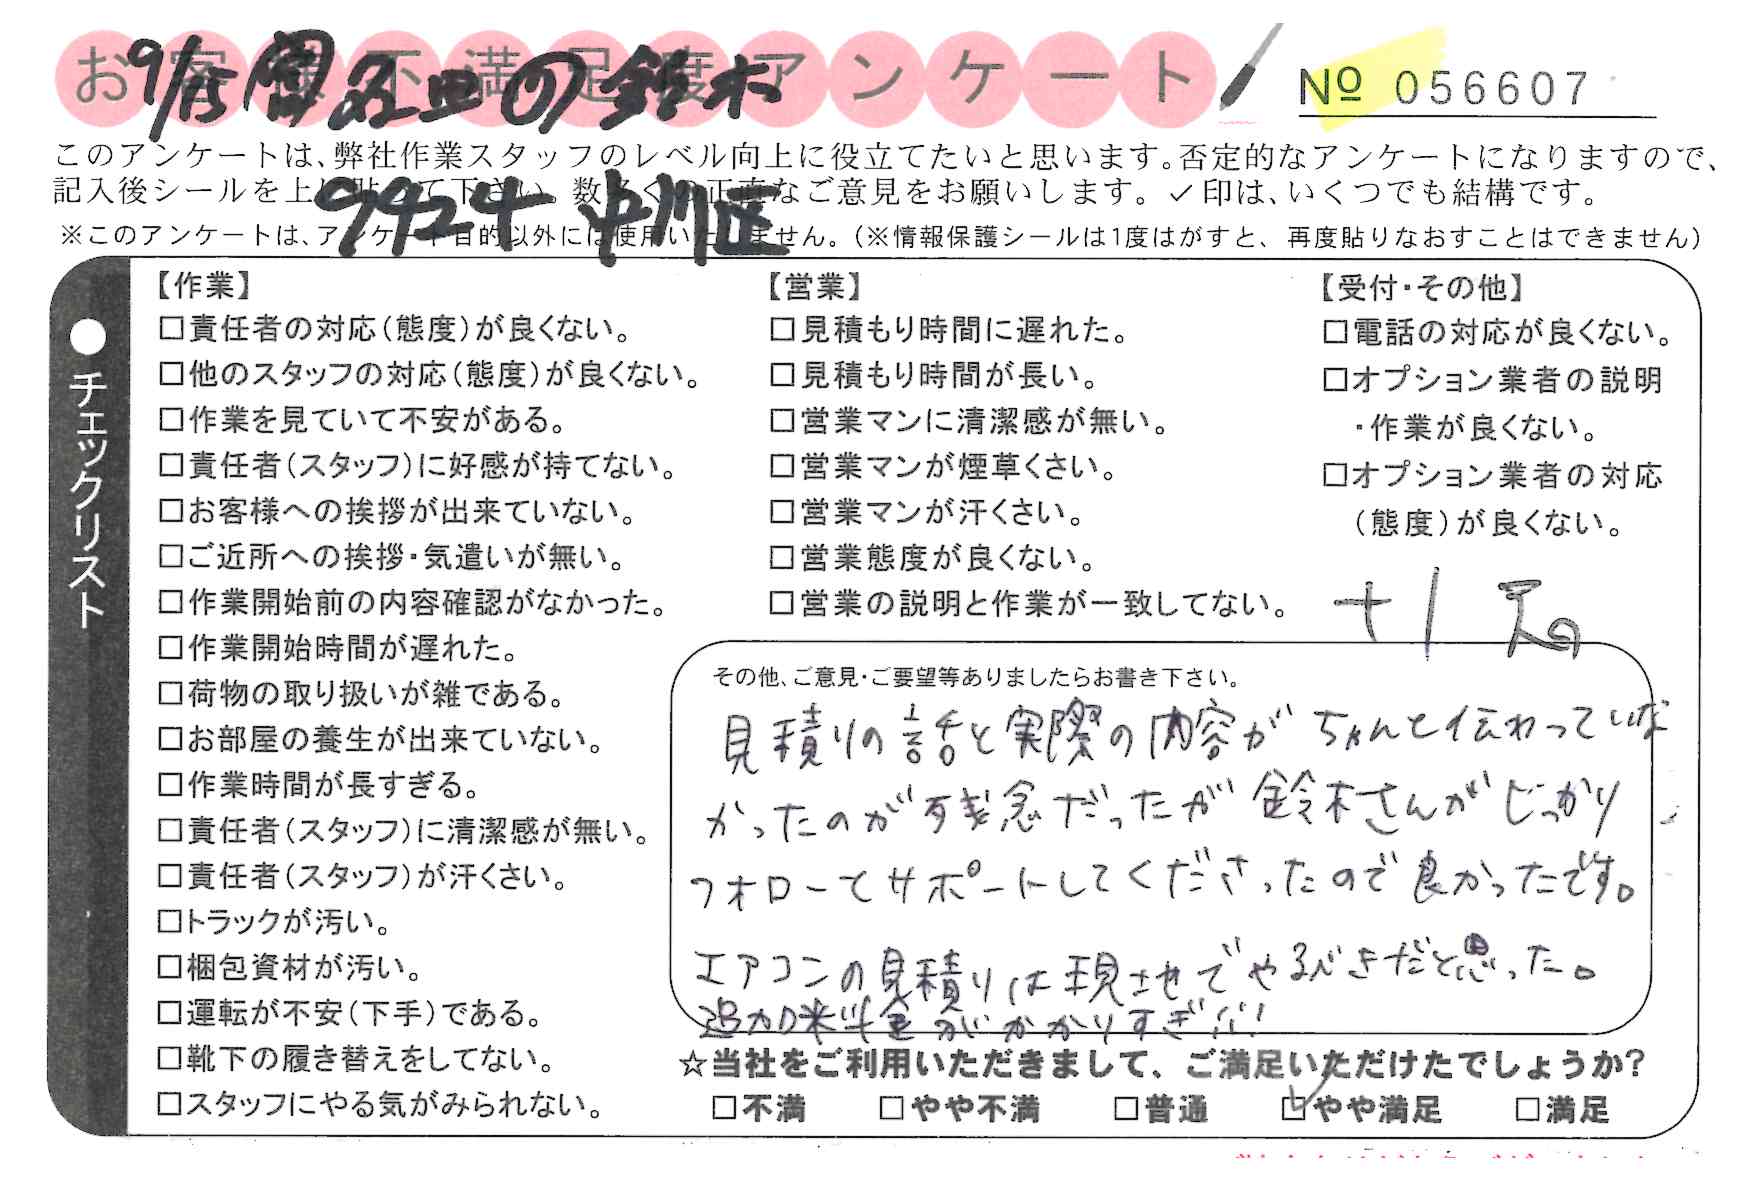 お客様不満足度アンケート
9/15 の鈴木
№ 056607
このアンケートは、弊社作業スタッフのレベル向上に役立てたいと思います。否定的なアンケートになりますので、
記入後シールを上に貼って下さい。数多くの正直なご意見をお願いします。✓印は、いくつでも結構です。
9424 中川区
※このアンケートは、アンケート目的以外には使用いたしません。（※情報保護シールは1度はがすと、再度貼りなおすことはできません）
●チェックリスト
【作業】
□責任者の対応（態度）が良くない。
□他のスタッフの対応（態度）が良くない。
□作業を見ていて不安がある。
□責任者（スタッフ）に好感が持てない。
□お客様への挨拶が出来ていない。
□ご近所への挨拶・気遣いが無い。
□作業開始前の内容確認がなかった。
□作業開始時間が遅れた。
□荷物の取り扱いが雑である。
□お部屋の養生が出来ていない。
□作業時間が長すぎる。
□責任者（スタッフ）に清潔感が無い。
□責任者（スタッフ）が汗くさい。
□トラックが汚い。
□梱包資材が汚い。
□運転が不安（下手）である。
□靴下の履き替えをしてない。
□スタッフにやる気がみられない。
【営業】
□見積もり時間に遅れた。
□見積もり時間が長い。
□営業マンに清潔感が無い。
□営業マンが煙草くさい。
□営業マンが汗くさい。
□営業態度が良くない。
□営業の説明と作業が一致してない。
【受付・その他】
□電話の対応が良くない。
□オプション業者の説明
・作業が良くない。
□オプション業者の対応
（態度）が良くない。
その他、ご意見・ご要望等ありましたらお書き下さい。
見積りの話と実際の内容がちゃんと伝わっていな
かったのが残念だったが鈴木さんがしっかり
フォローてサポートしてくださったので良かったです。
エアコンの見積りは現させでやるべきだと思った。
追加料金がかかりすぎ!!!
☆当社をご利用いただきまして、ご満足いただけたでしょうか？
□不満 □やや不満 □普通 ☑やや満足 □満足